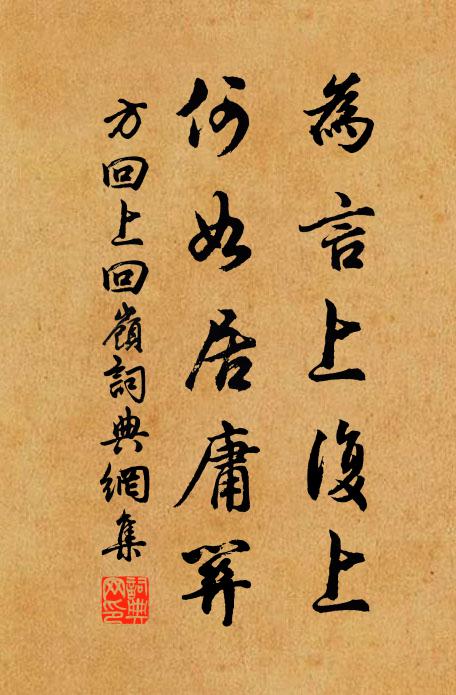 為言上復上
何如居庸關
方回上回嶺詞典網集
詞典网印